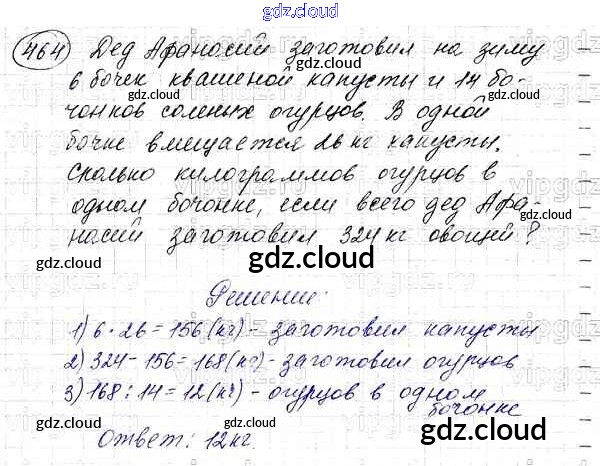 gdz.cloud
464 Дед Афанасий заготовил на зиму
6 бочек квашеной капусты и 14 бо-
чонков соленых огурцов. В одной
бочке вмещается 26 кг капусты.
Сколько килограммов огурцов в
одном бочонке, если всего дед Афа-
насий заготовил 324 кг овощей?
gdz.cloud
Решение:
1) 6 · 26 = 156 (кг) - заготовил капусты
2) 324 - 156 = 168 (кг) - заготовил огурцов
3) 168 : 14 = 12 (кг) - огурцов в одном
бочонке
gdz.cloud
Ответ: 12 кг.